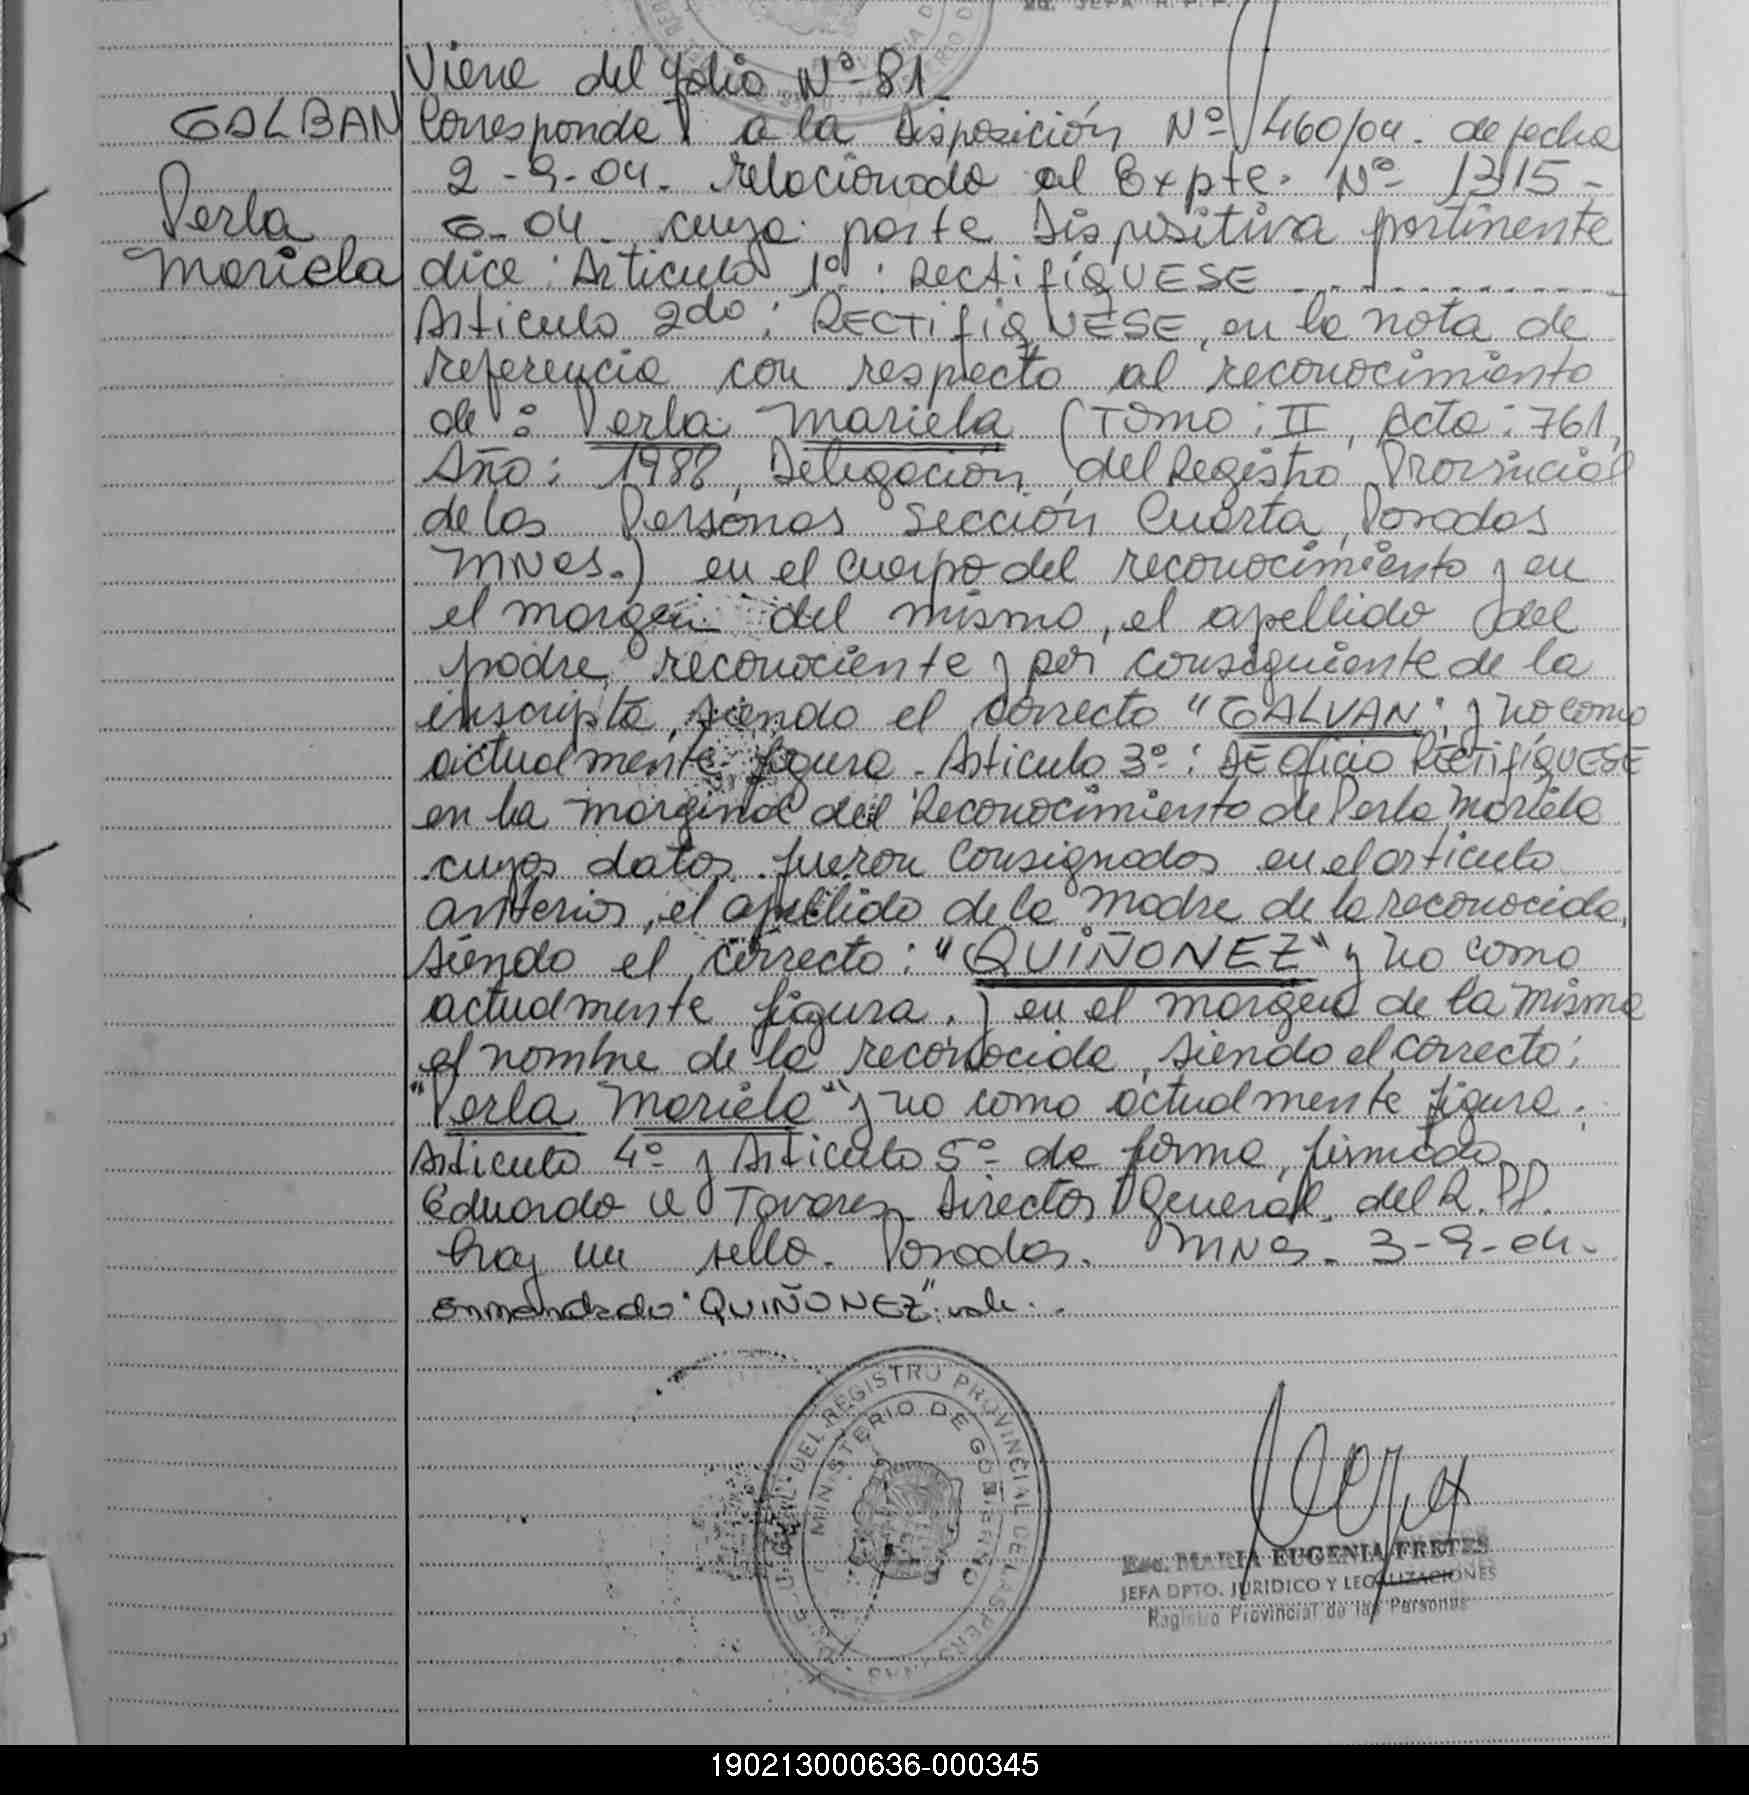 Viene del folio Nº 81
GALBAN Corresponde a la Disposición Nº 460/04. de fecha
2-9-04. relacionado al Expte. Nº 1315-
Perla
G-04. cuya parte Dispositiva pertinente
Mariela dice: Articulo 1º: RectifíQUESE
Articulo 2do: RECTifíQUESE, en la nota de
referencia con respecto al reconocimiento
de: Perla Mariela (Tomo: II, Acta: 761,
Año: 1988, Delegación del Registro Provincial
de las Personas Sección Cuarta, Posadas
MNes.) en el cuerpo del reconocimiento y en
el margen del mismo, el apellido del
padre reconociente y por consiguiente de la
inscripta, siendo el correcto "GALVAN", y no como
actualmente figura. Articulo 3º: DE Oficio RECTifíQUESE
en la marginal del Reconocimiento de Perla Mariela
cuyos datos fueron consignados en el articulo
anterior, el apellido de la madre de la reconocida,
siendo el correcto: "QUIÑONEZ" y no como
actualmente figura. y en el margen de la misma
el nombre de la reconocida, siendo el correcto:
"Perla Mariela" y no como actualmente figura.
Articulo 4º y Articulo 5º de forma, firmado
Eduardo Tavares Director General del R.P.P.
hay un sello. Posadas. MNes. 3-9-04.
Enmendado "QUIÑONEZ": vale.
DEL REGISTRO PROVINCIAL DE LAS PERSONAS
MINISTERIO DE GOBIERNO
Esc. MARIA EUGENIA FRETES
JEFA DPTO. JURIDICO Y LEGALIZACIONES
Registro Provincial de las Personas
190213000636-000345